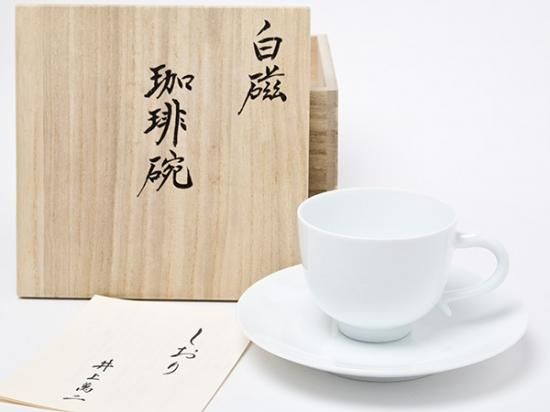 白磁
珈琲碗
しおり
井上萬二